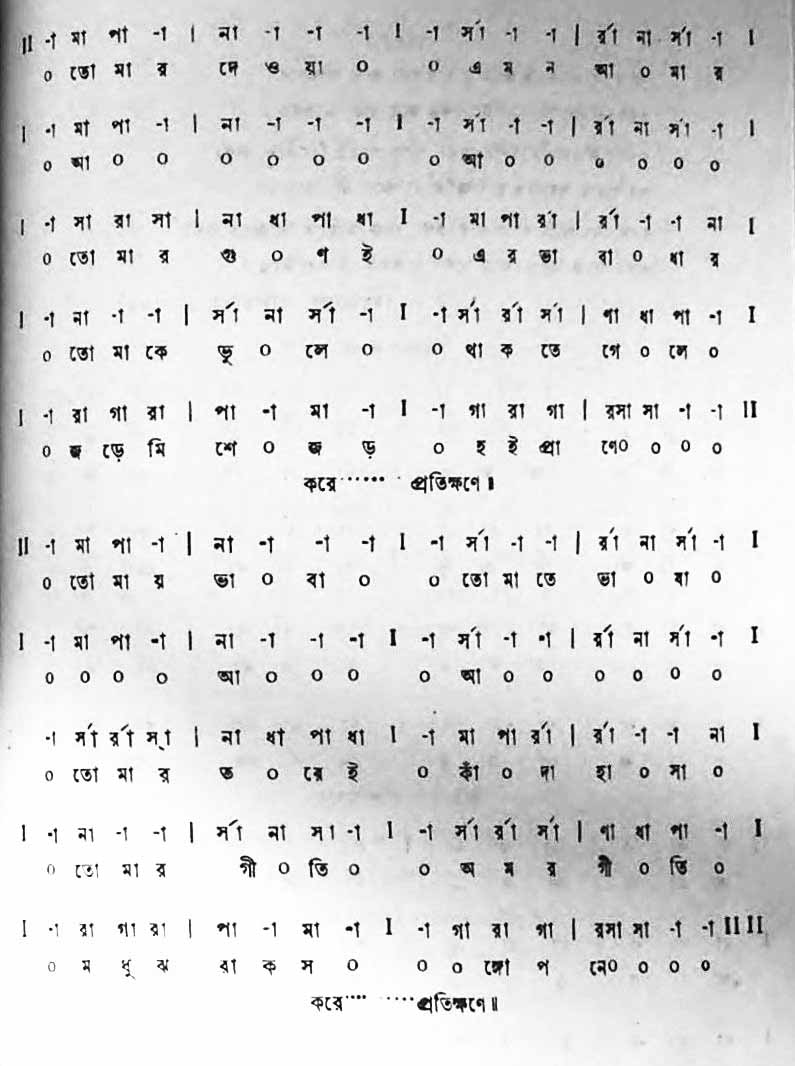 II -া মা পা -া | না -া -া -া I -া র্সা -া -া | র্রা না র্সা -া I
০ তো মা র দে ও য়া ০ ০ এ ম ন আ ০ মা র
I -া মা পা -া | না -া -া -া I -া র্সা -া -া | র্রা না র্সা -া I
০ আ ০ ০ ০ ০ ০ ০ ০ আ ০ ০ ০ ০ ০ ০
I -া সা রা সা | না ধা পা ধা I -া মা পা র্রা | র্রা -া -া না I
০ তো মা র গু ০ ণ ই ০ এ র ভা বা ০ ধা র
I -া না -া -া | র্সা না র্সা -া I -া র্সা র্রা র্সা | ণা ধা পা -া I
০ তো মা কে ভু ০ লে ০ ০ থা ক তে গে ০ লে ০
I -া রা গা রা | পা -া মা -া I -া গা রা গা | রসা সা -া -া II
০ জ ড়ে মি শে ০ জ ড় ০ হ ই প্রা ণে০ ০ ০ ০
করে ...... প্রতিক্ষণে॥
II -া মা পা -া | না -া -া -া I -া র্সা -া -া | র্রা না র্সা -া I
০ তো মা য় ভা ০ বা ০ ০ তো মা তে ভা ০ বা ০
I -া মা পা -া | না -া -া -া I -া র্সা -া -া | র্রা না র্সা -া I
০ ০ ০ ০ আ ০ ০ ০ ০ আ ০ ০ ০ ০ ০ ০
-া র্সা র্রা স্া | না ধা পা ধা I -া মা পা র্রা | র্রা -া -া না I
০ তো মা র ত ০ রে ই ০ কাঁ ০ দা হা ০ সা ০
I -া না -া -া | র্সা না সা -া I -া র্সা র্রা র্সা | ণা ধা পা -া I
০ তো মা র গী ০ তি ০ ০ অ ম র গী ০ তি ০
I -া রা গা রা | পা -া মা -া I -া গা রা গা | রসা সা -া -া II II
০ ম ধু ঝ রা ক স ০ ০ ০ ঙ্গো প নে০ ০ ০ ০
করে.... .....প্রতিক্ষণে॥